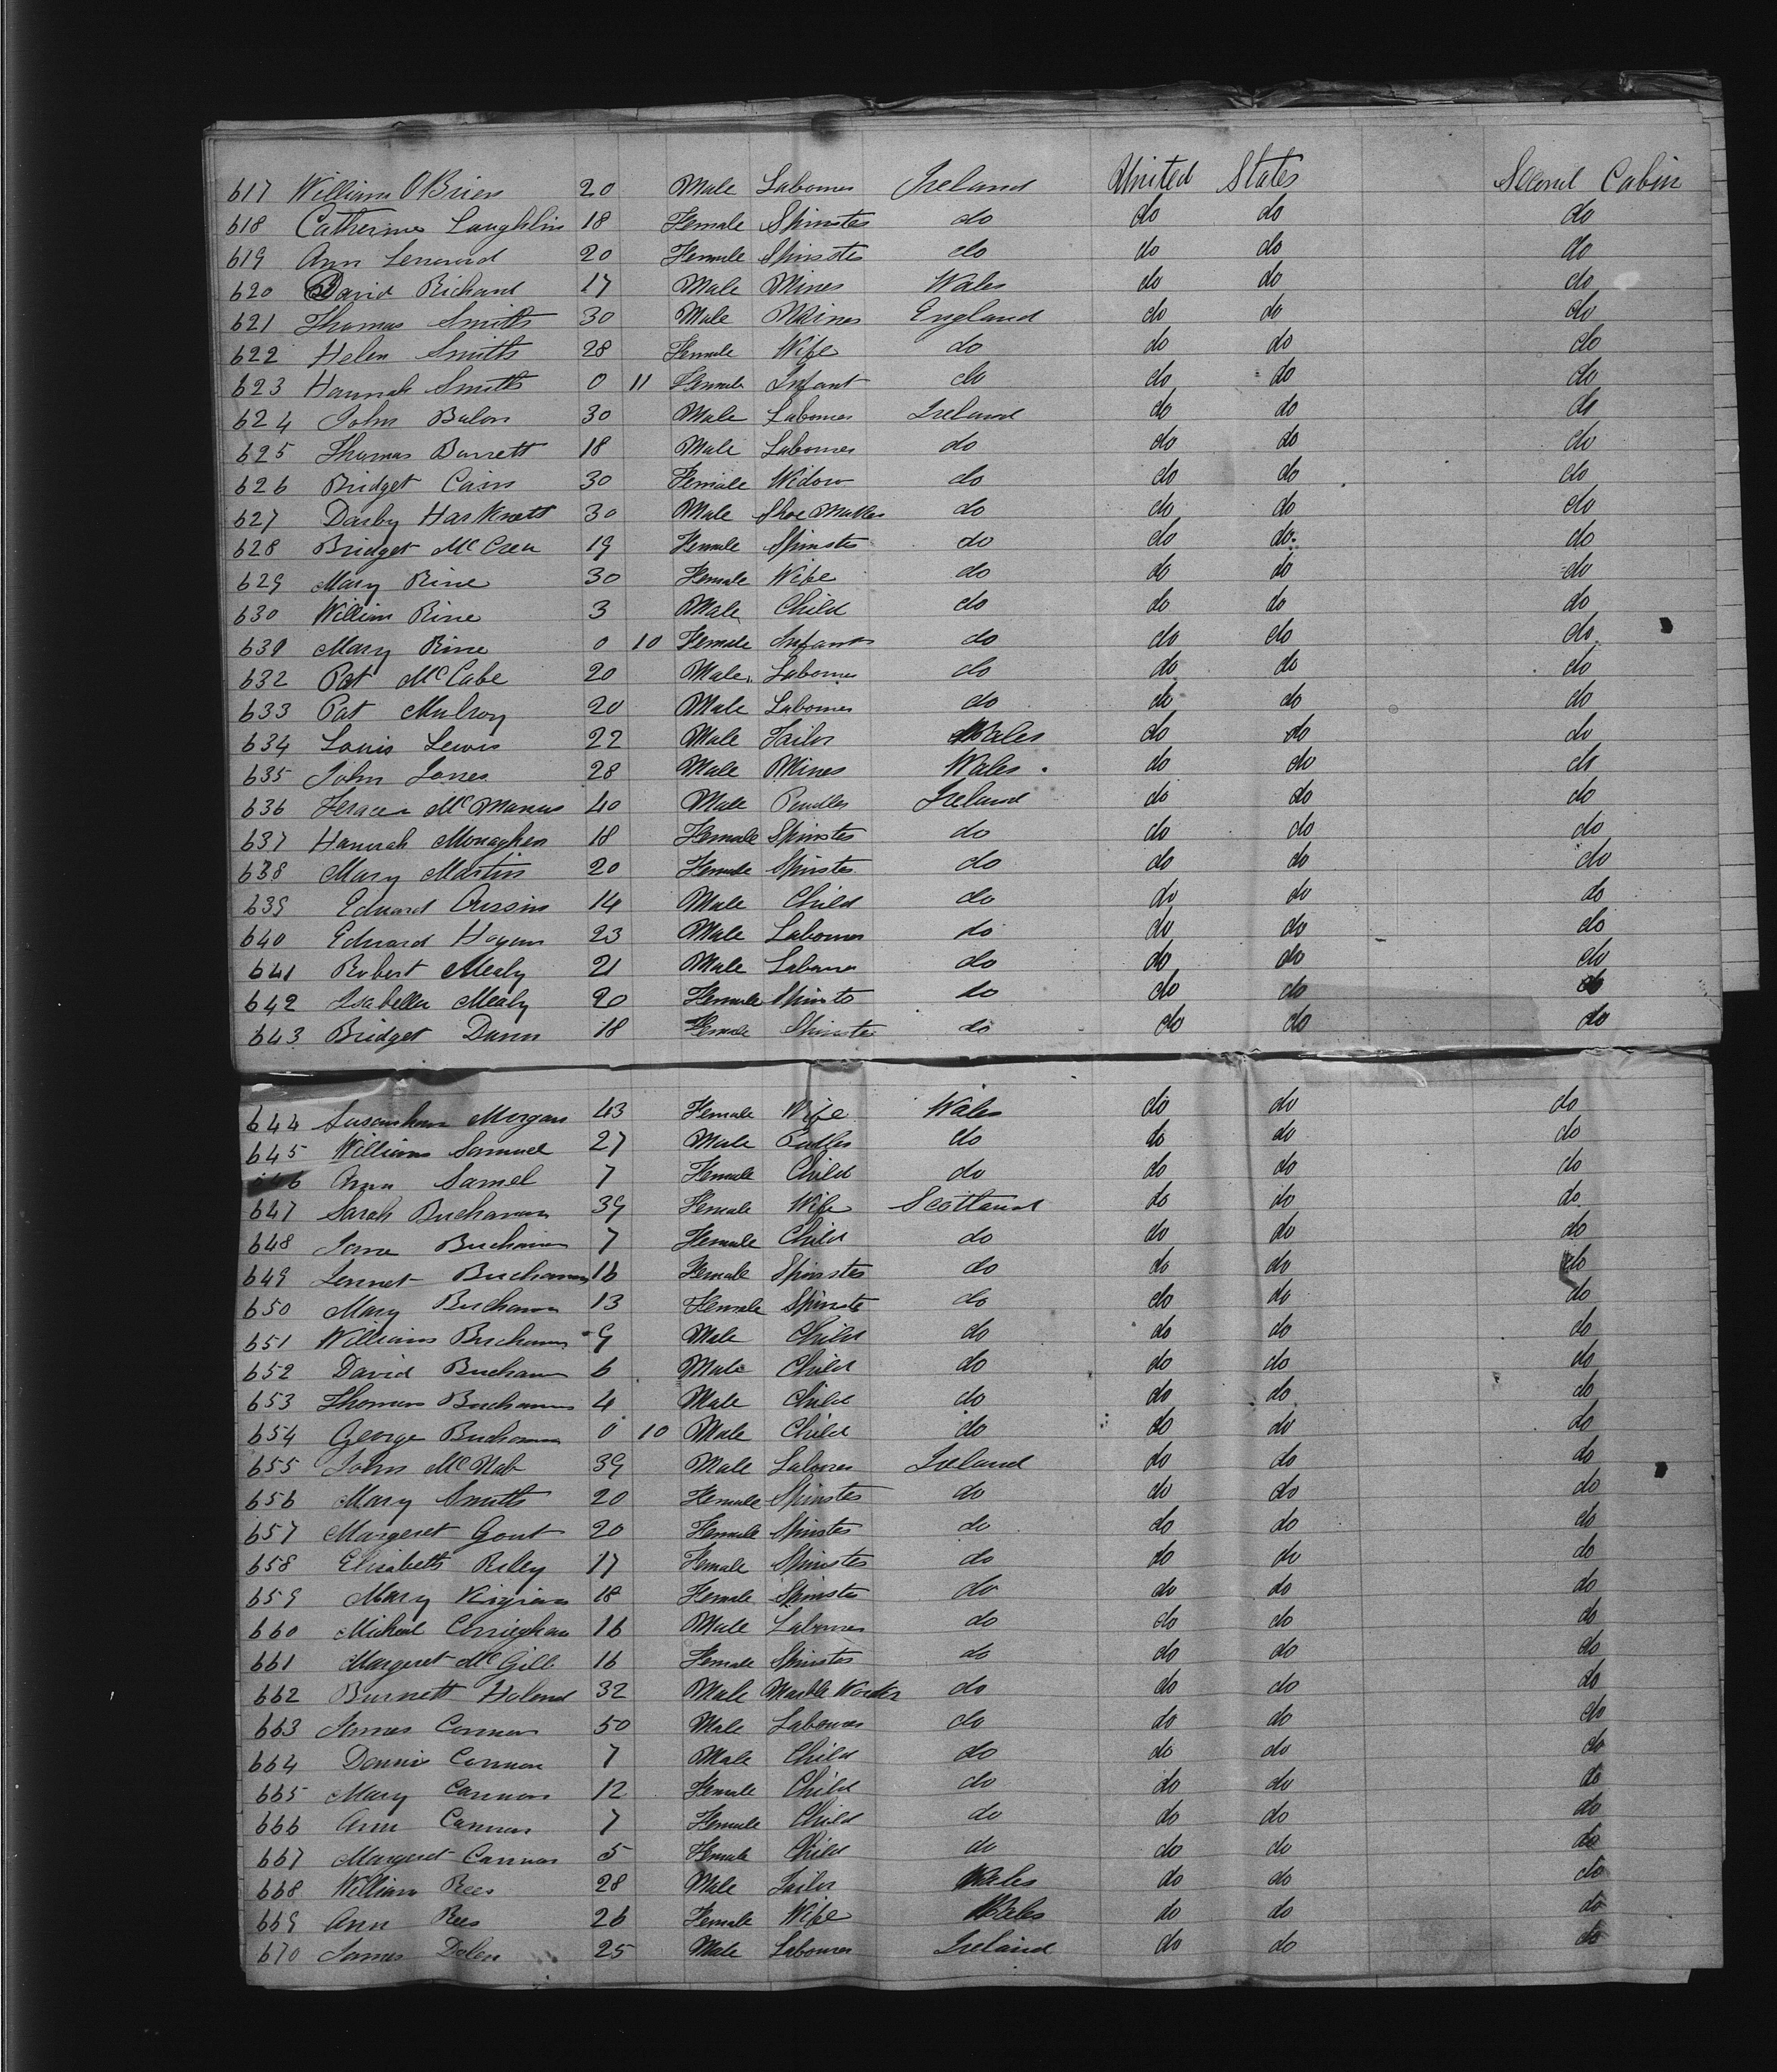 617 William OBrien 20 Male Labourer Ireland United States Second Cabin
618 Catherine Laughlin 18 Female Spinster do do do do
619 Ann Lennard 20 Female Spinster do do do do
620 David Richard 17 Male Miner Wales do do do
621 Thomas Smith 30 Male Miner England do do do
622 Helen Smith 28 Female Wife do do do do
623 Hannah Smith 0 11 Female Infant do do do do
624 John Balon 30 Male Labourer Ireland do do do
625 Thomas Barrett 18 Male Labourer do do do do
626 Bridget Cain 30 Female Widow do do do do
627 Darby Harknett 30 Male Shoe Maker do do do do
628 Bridget McCrea 19 Female Spinster do do do. do
629 Mary Rine 30 Female Wife do do do do
630 William Rine 3 Male Child do do do do
631 Mary Rine 0 10 Female Infant do do do do
632 Pat McCabe 20 Male Labourer do do do do
633 Pat Mulroy 20 Male Labourer do do do do
634 Louis Lewis 22 Male Tailor Wales do do do
635 John Jones 28 Male Miner Wales do do do
636 McManus 40 Male Ireland do do do
637 Hannah Monaghan 18 Female Spinster do do do do
638 Mary Martin 20 Female Spinster do do do do
639 Edward 14 Male Child do do do do
640 Edward Hogan 23 Male Labourer do do do do
641 Robert Mealy 21 Male Labourer do do do do
642 Isabella Mealy 20 Female Spinster do do do do
643 Bridget Dunn 18 Female Spinster do do do do
644 Susanhan Morgan 43 Female Wife Wales do do do
645 William Samuel 27 Male Pudler do do do do
646 Ann Samel 7 Female Child do do do do
647 Sarah Buchanan 39 Female Wife Scotland do do do
648 Jane Buchanan 7 Female Child do do do do
649 Jennet Buchanan 16 Female Spinster do do do do
650 Mary Buchanan 13 Female Spinster do do do do
651 William Buchanan 9 Male Child do do do do
652 David Buchanan 6 Male Child do do do do
653 Thomas Buchanan 4 Male Child do do do do
654 George Buchanan 0 10 Male Child do do do do
655 John McNab 39 Male Labourer Ireland do do do
656 Mary Smith 20 Female Spinster do do do do
657 Margeret Gout 20 Female Spinster do do do do
658 Elisabeth Riley 17 Female Spinster do do do do
659 Mary 18 Female Spinster do do do do
660 Micheal Corrieghan 16 Male Labourer do do do do
661 Margeret McGill 16 Female Spinster do do do do
662 Burnett Holend 32 Male Marble Worker do do do do
663 James Cannon 50 Male Labourer do do do do
664 Dennis Cannon 7 Male Child do do do do
665 Mary Cannon 12 Female Child do do do do
666 Ann Cannon 7 Female Child do do do do
667 Margeret Cannon 5 Female Child do do do do
668 William Rees 28 Male Tailor Wales do do do
669 Ann Rees 26 Female Wife Wales do do do
670 James Dolen 25 Male Labourer Ireland do do do